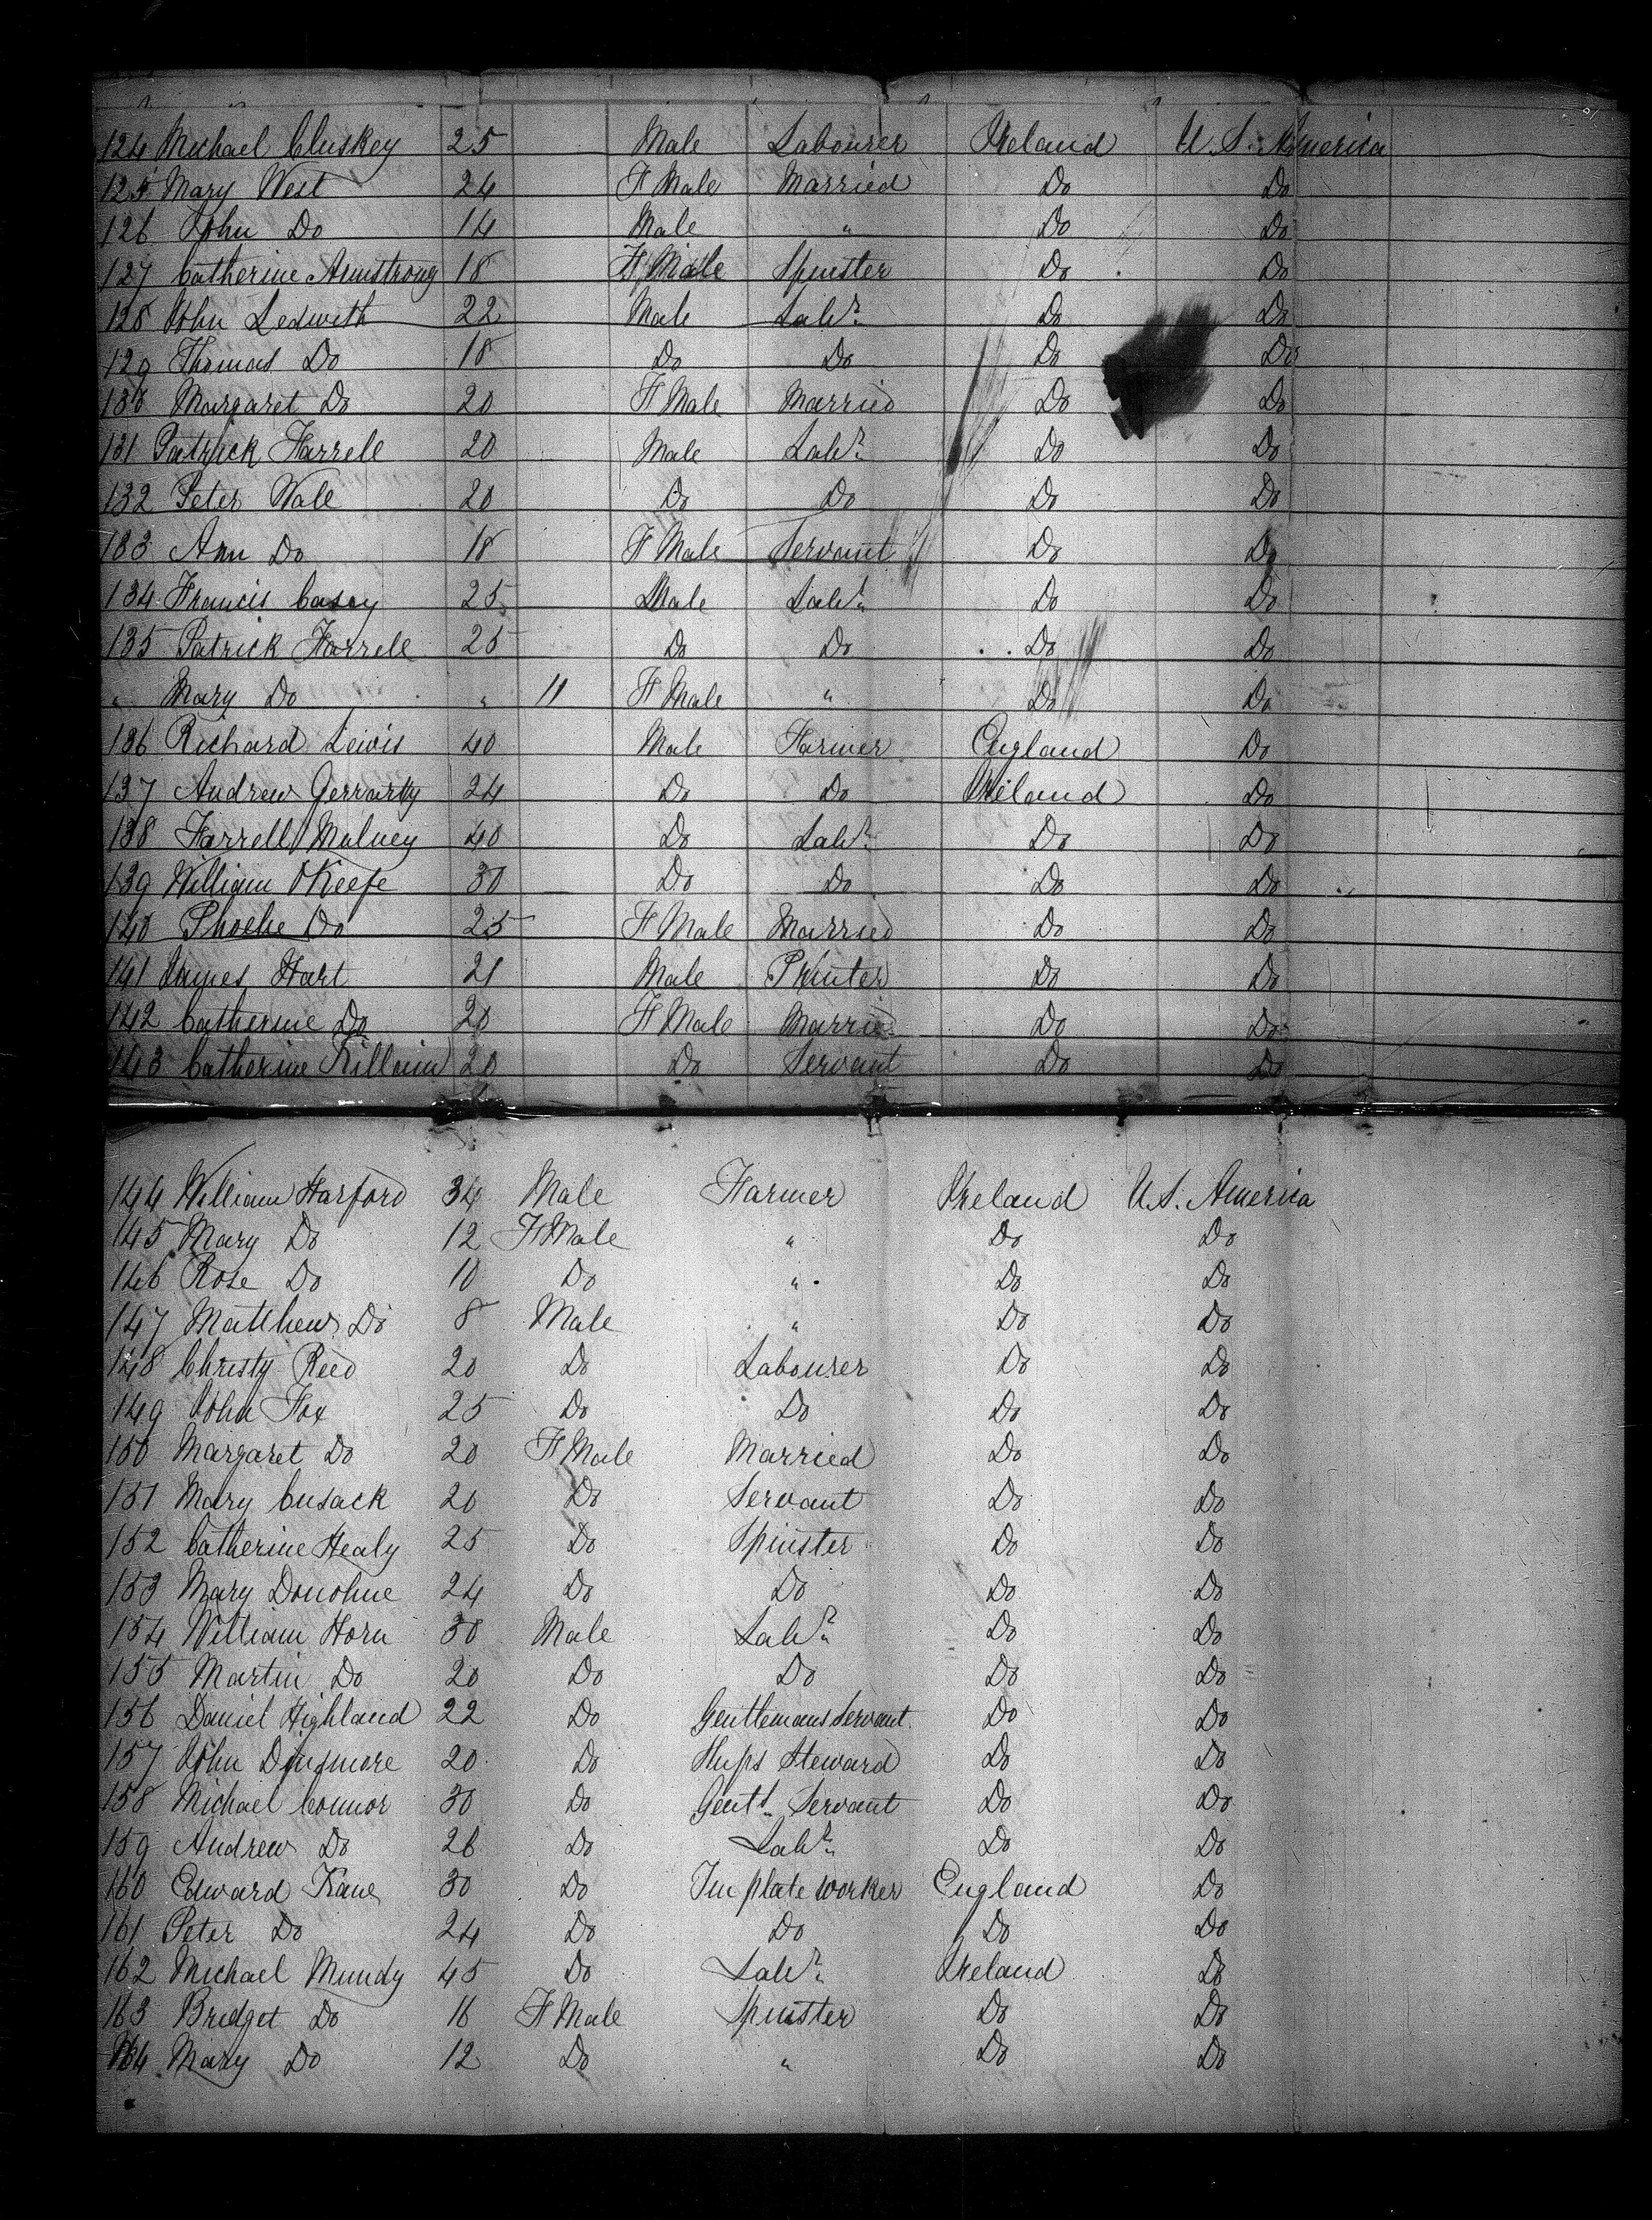 124 Michael Cluskey 25 Male Labourer Ireland U.S. America
125 Mary West 24 F Male Married Do Do
126 John Do 14 Male " Do Do
127 Catherine Armstrong 18 F Male Spinster Do Do
128 John Ledwith 22 Male Labr. Do Do
129 Thomas Do 18 Do Do Do Do
130 Margaret Do 20 F Male Married Do Do
131 Patrick Farrell 20 Male Labr. Do Do
132 Peter Wale 20 Do Do Do Do
133 Ann Do 18 F Male Servant Do Do
134 Francis Casey 25 Male Labr. Do Do
135 Patrick Farrell 25 Do Do Do Do
" Mary Do " 11 F Male " Do Do
136 Richard Lewis 40 Male Farmer England Do
137 Andrew Gerrartty 24 Do Do Ireland Do
138 Farrell Malney 40 Do Labr. Do Do
139 William OKeefe 30 Do Do Do Do
140 Phoebe Do 25 F Male Married Do Do
141 James Hart 21 Male Printer Do Do
142 Catherine Do 20 F Male Married Do Do
143 Catherine Killain 20 Do Servant Do Do
144 William Harford 34 Male Farmer Ireland U.S. America
145 Mary Do 12 F Male " Do Do
146 Rose Do 10 Do " Do Do
147 Matthew Do 8 Male " Do Do
148 Christy Reed 20 Do Labourer Do Do
149 John Fox 25 Do Do Do Do
150 Margaret Do 20 F Male Married Do Do
151 Mary Cusack 20 Do Servant Do Do
152 Catherine Healy 25 Do Spinster Do Do
153 Mary Donohue 24 Do Do Do Do
154 William Horn 30 Male Labr. Do Do
155 Martin Do 20 Do Do Do Do
156 Daniel Highland 22 Do Gentlemans Servant Do Do
157 John Dinsmore 20 Do Ships Steward Do Do
158 Michael Connor 30 Do Gents. Servant Do Do
159 Andrew Do 26 Do Labr. Do Do
160 Edward Kane 30 Do Tin plate worker England Do
161 Peter Do 24 Do Do Do Do
162 Michael Mundy 45 Do Labr. Ireland Do
163 Bridget Do 16 F Male Spinster Do Do
164 Mary Do 12 Do " Do Do